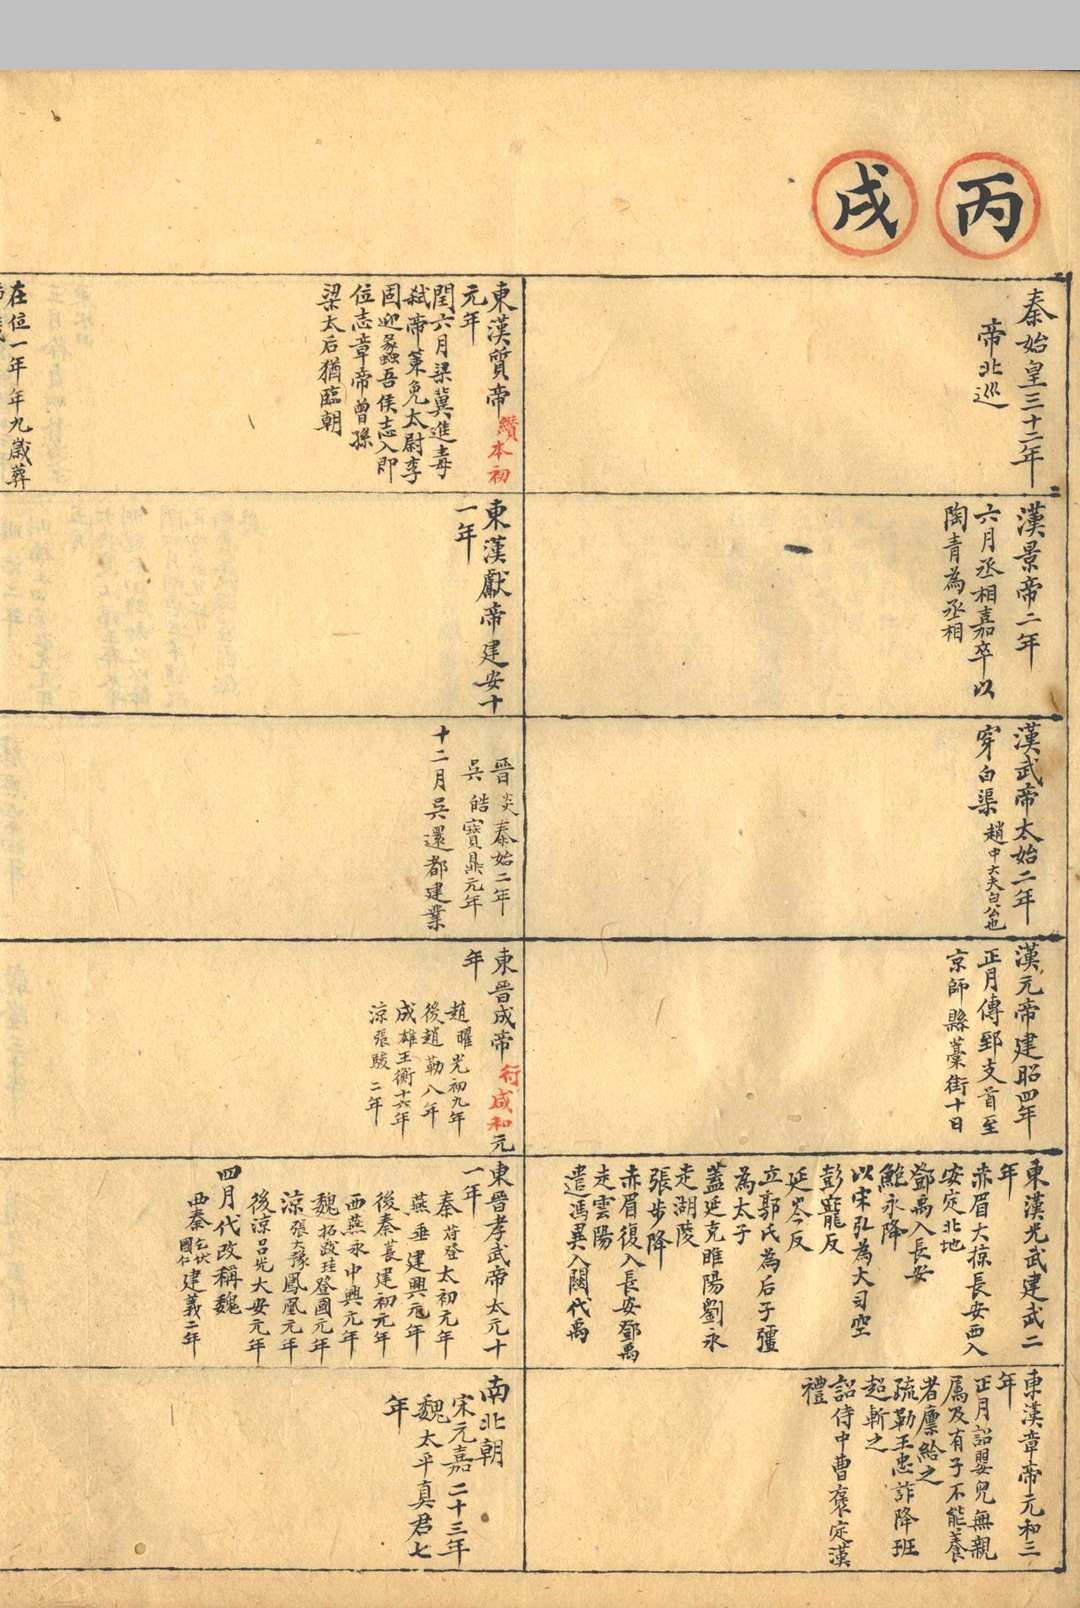 丙
戌
秦始皇三十二年
帝北巡
漢景帝二年
六月丞相嘉卒以
陶青為丞相
漢武帝太始二年
穿白渠趙中大夫白公也
漢元帝建昭四年
正月傳郅支首至
京師縣藁街十日
東漢光武建武二
年
赤眉大掠長安西入
安定北地
鄧禹入長安
鮑永降
以宋弘為大司空
彭寵反
延岑反
立郭氏為后子彊
為太子
蓋延克睢陽劉永
走湖陵
張步降
赤眉復入長安鄧禹
走雲陽
遣馮異入關代禹
東漢章帝元和三
年
正月詔嬰兒無親
屬及有子不能養
者廩給之
疏勒王忠詐降班
超斬之
詔侍中曹褒定漢
禮
東漢質帝纘本初
元年
閏六月梁冀進毒
弒帝策免太尉李
固迎蠡吾侯志入即
位志章帝曾孫
梁太后猶臨朝
在位一年年九歲葬
東漢獻帝建安十
一年
晉炎泰始二年
吳皓寶鼎元年
十二月吳還都建業
東晉成帝衍咸和元
年
趙曜光初九年
後趙勒八年
成雄玉衡十六年
涼張駿二年
東晉孝武帝太元十
一年
秦苻登太初元年
燕垂建興元年
後秦萇建初元年
西燕永中興元年
魏拓跋珪登國元年
涼張大豫鳳凰元年
後涼呂光大安元年
四月代改稱魏
西秦乞伏國仁建義二年
南北朝
宋元嘉二十三年
魏太平真君七
年